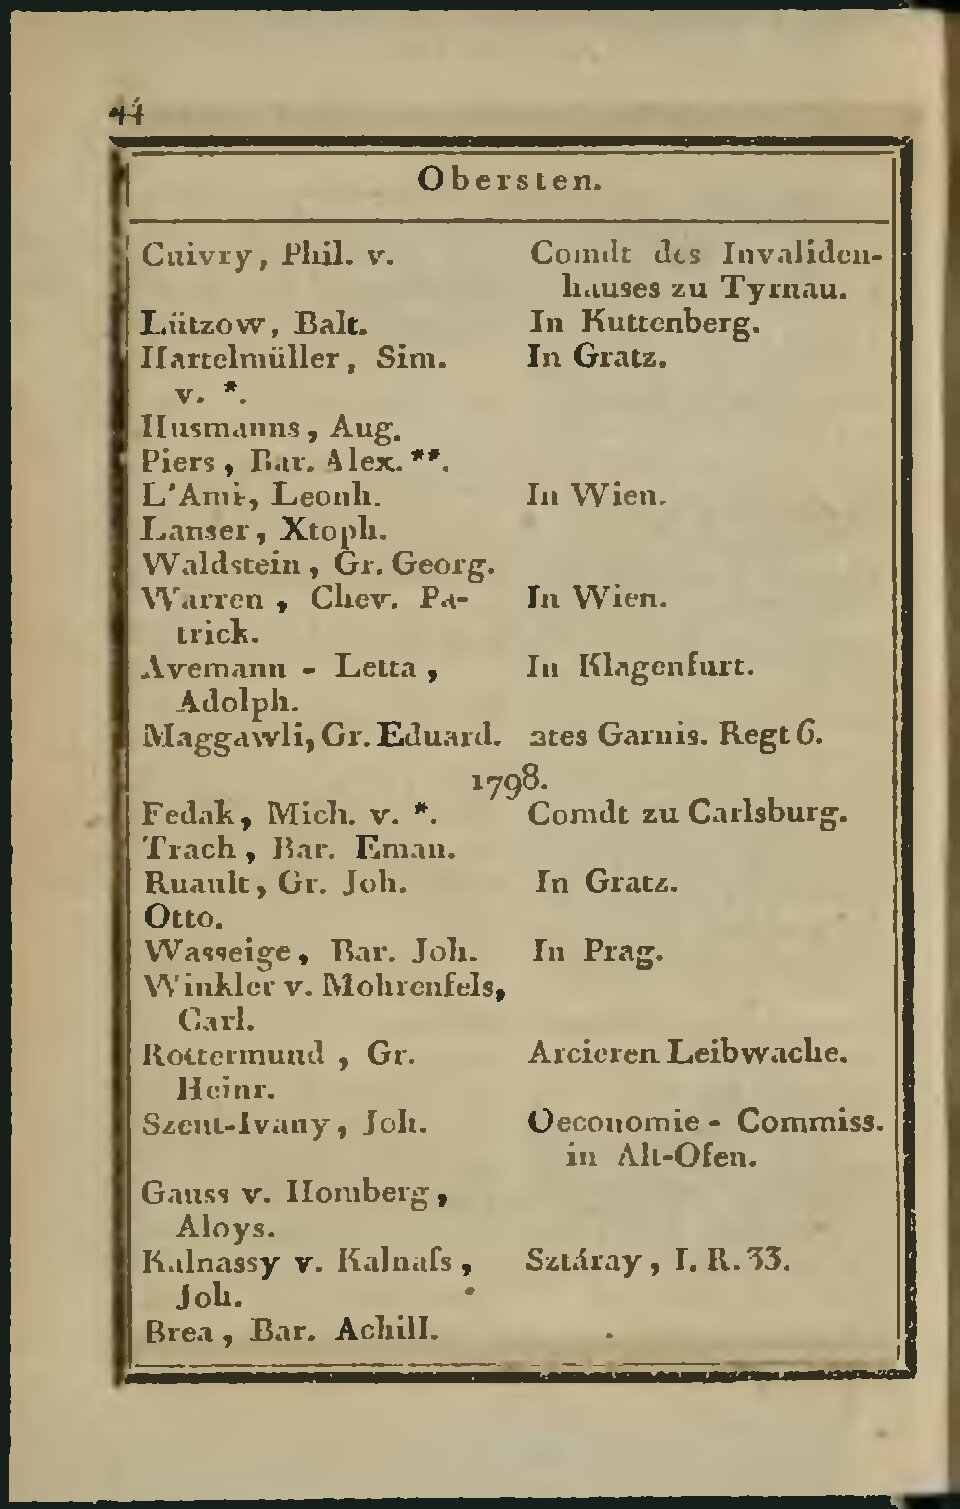 44
Obersten.
Cuivry, Phil. v. Comdt des Invaliden-
hauses zu Tyrnau.
Lützow, Balt. In Kuttenberg.
Hartelmüller, Sim. In Gratz.
v. *.
Husmanns, Aug.
Piers, Bar. Alex. **.
L'Ami, Leonh. In Wien.
Lanser, Xtoph.
Waldstein, Gr. Georg.
Warren, Chev. Pa- In Wien.
trick.
Avemann - Letta, In Klagenfurt.
Adolph.
Maggawli, Gr. Eduard. 2tes Garnis. Regt 6.
1798.
Fedak, Mich. v. *. Comdt zu Carlsburg.
Trach, Bar. Eman.
Ruault, Gr. Joh. In Gratz.
Otto.
Wasseige, Bar. Joh. In Prag.
Winkler v. Mohrenfels,
Carl.
Rottermund, Gr. Arcieren Leibwache.
Heinr.
Szent-Ivany, Joh. Oeconomie - Commiss.
in Alt-Ofen.
Gauss v. Homberg,
Aloys.
Kalnassy v. Kalnaſs, Sztáray, I. R. 33.
Joh.
Brea, Bar. Achill.